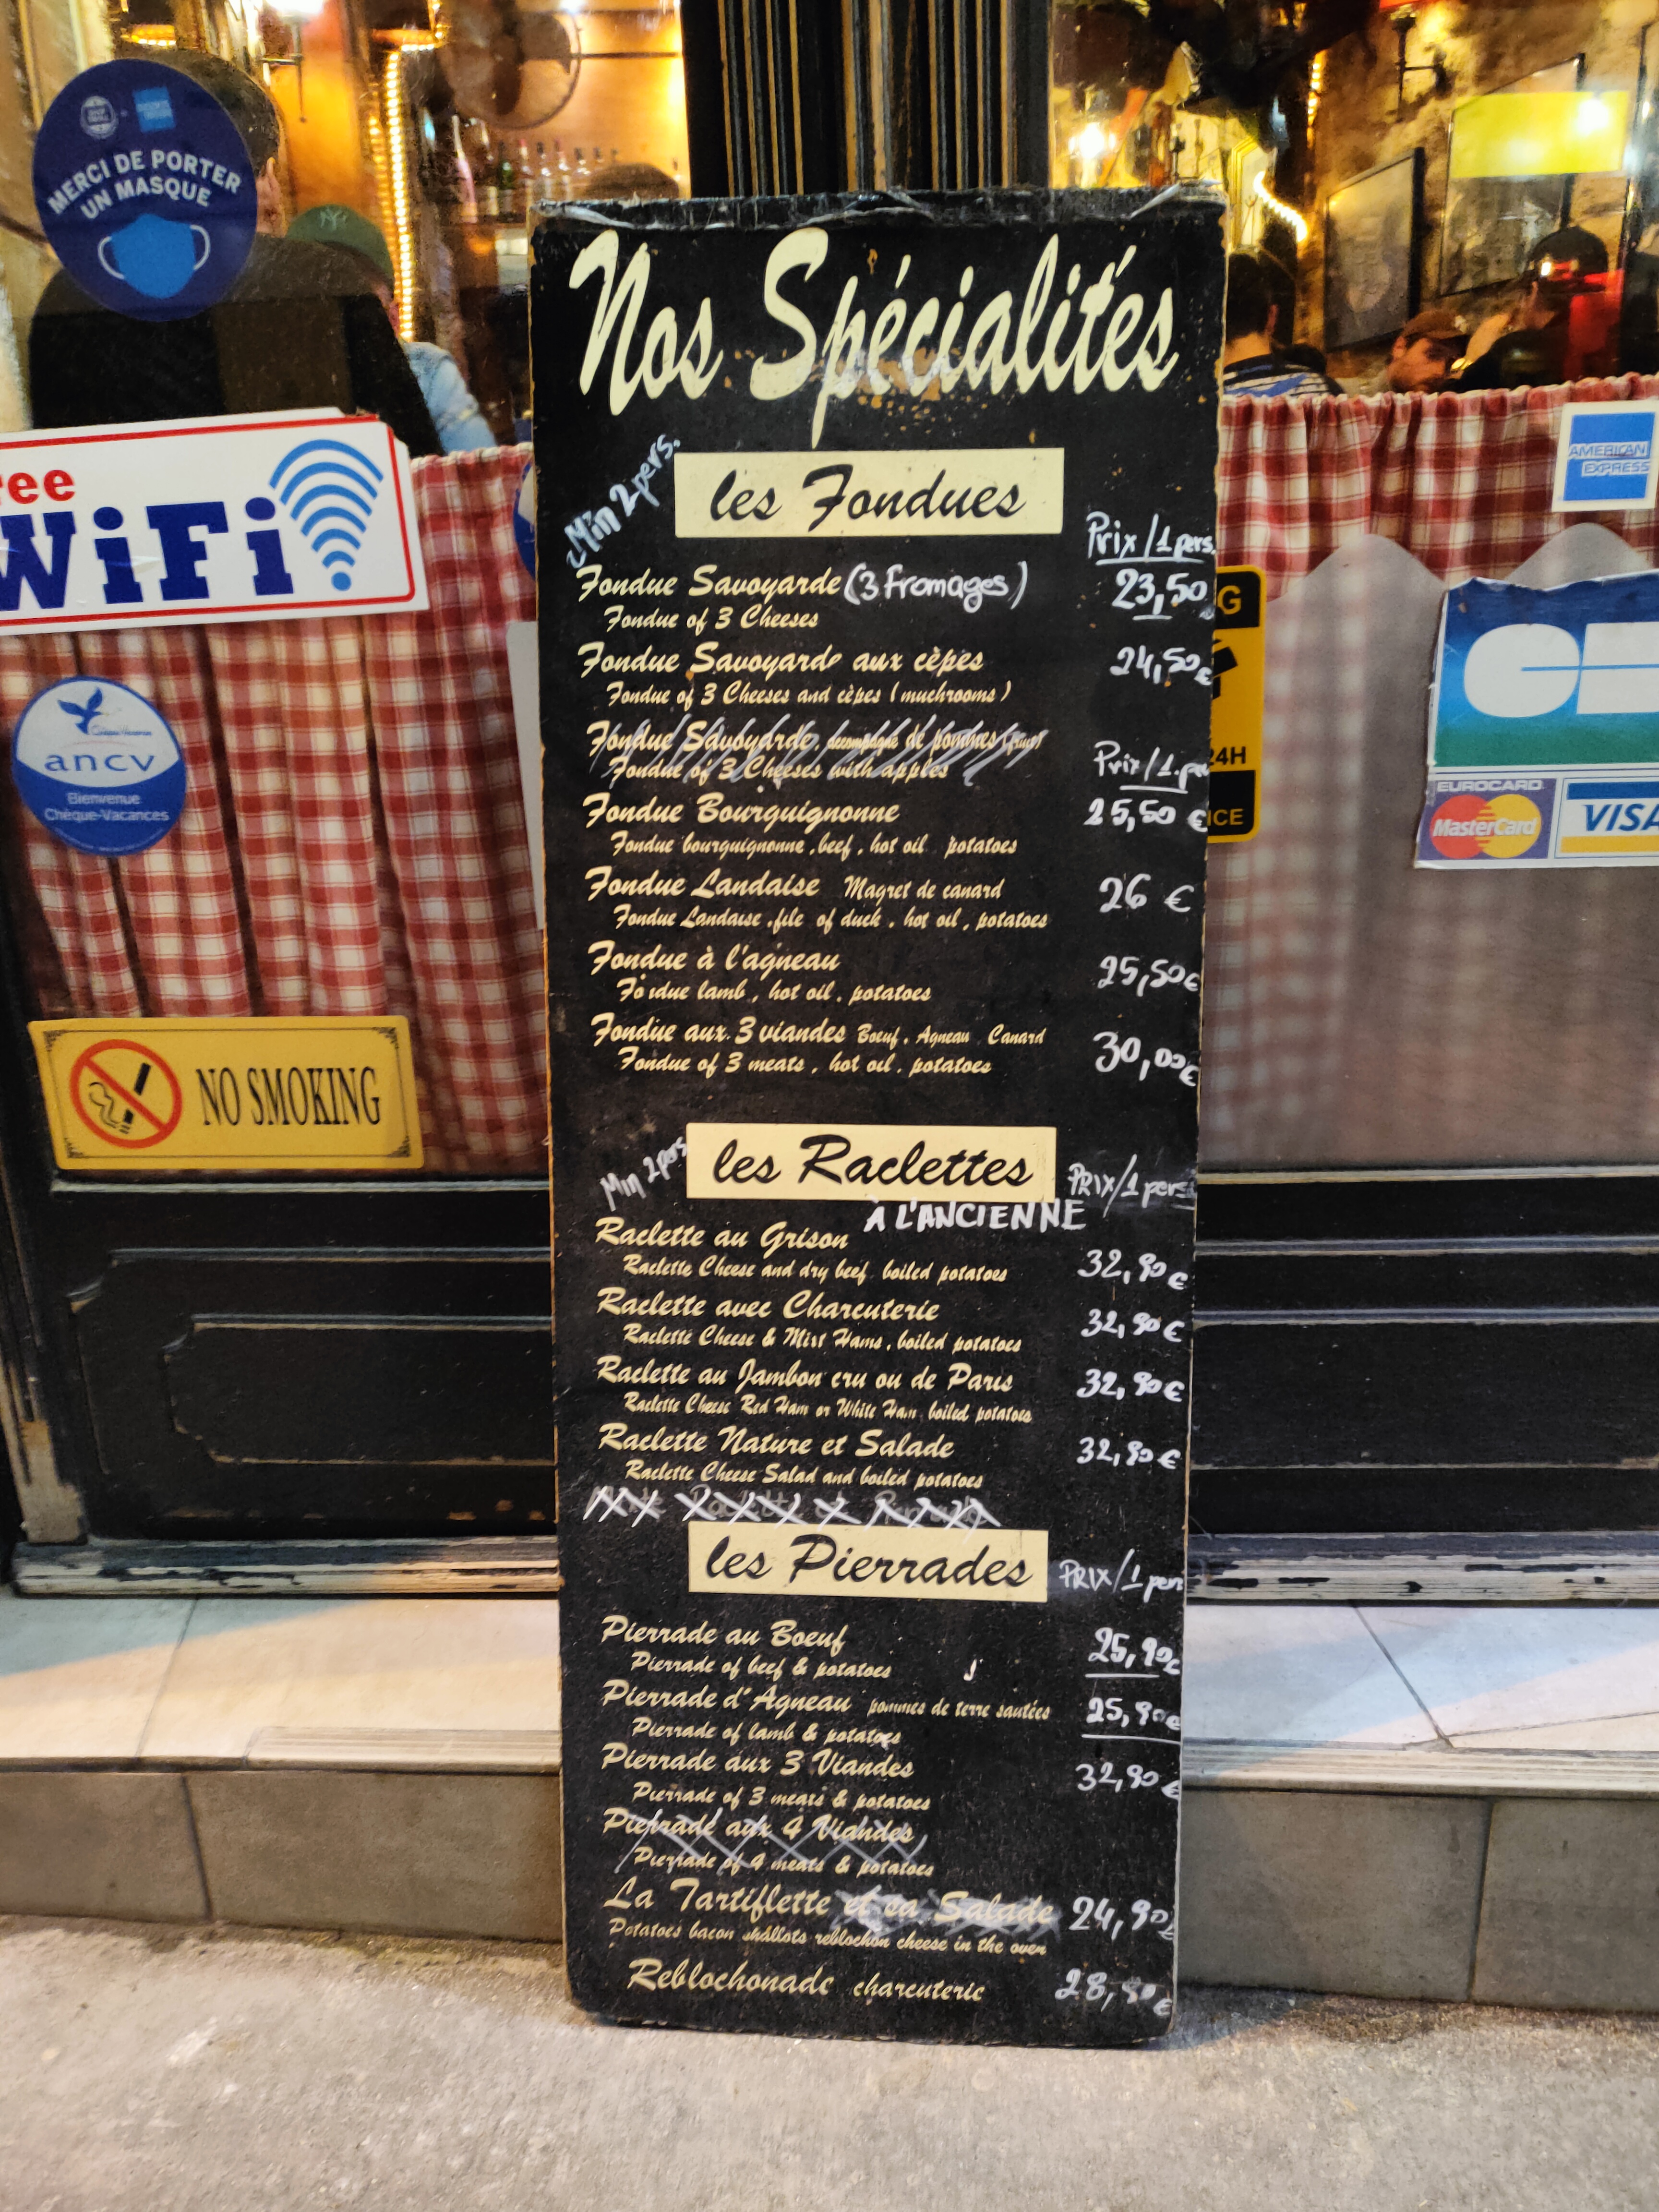 MERCI DE PORTER
UN MASQUE
ree
WiFi
ancv
Bienvenue
Chèque-Vacances
NO SMOKING
Nos Spécialités
Min 2 pers.
les Fondues
Prix/1 pers.
Fondue Savoyarde (3 Fromages) 23,50
Fondue of 3 Cheeses
Fondue Savoyarde aux cèpes 24,50€
Fondue of 3 Cheeses and cèpes (muchrooms)
Fondue Savoyarde, accompagné de pommes (fruit)
Fondue of 3 Cheeses with apples
Prix/1.per
Fondue Bourguignonne 25,50 €
Fondue bourguignonne, beef, hot oil potatoes
Fondue Landaise Magret de canard 26 €
Fondue Landaise, file of duck, hot oil, potatoes
Fondue à l'agneau 25,50€
Fo due lamb, hot oil, potatoes
Fondue aux 3 viandes Boeuf, Agneau Canard 30,00€
Fondue of 3 meats, hot oil, potatoes
Min 2 pers
les Raclettes
PRIX/1 pers
À L'ANCIENNE
Raclette au Grison 32,90€
Raclette Cheese and dry beef boiled potatoes
Raclette avec Charcuterie 32,90€
Raclette Cheese & Mixt Hams, boiled potatoes
Raclette au Jambon cru ou de Paris 32,90€
Raclette Cheese Red Ham or White Ham boiled potatoes
Raclette Nature et Salade 32,90€
Raclette Cheese Salad and boiled potatoes
les Pierrades
PRIX/1 pers
Pierrade au Boeuf 25,90€
Pierrade of beef & potatoes
Pierrade d'Agneau pommes de terre sautées 25,90€
Pierrade of lamb & potatoes
Pierrade aux 3 Viandes 32,90€
Pierrade of 3 meats & potatoes
Pierrade aux 4 Viandes
Pierrade of 4 meats & potatoes
La Tartiflette et sa Salade 24,90€
Potatoes bacon shallots reblochon cheese in the oven
Reblochonade charcuterie 28,90€
AMERICAN
EXPRESS
G
24H
ICE
CB
EUROCARD
MasterCard
VISA